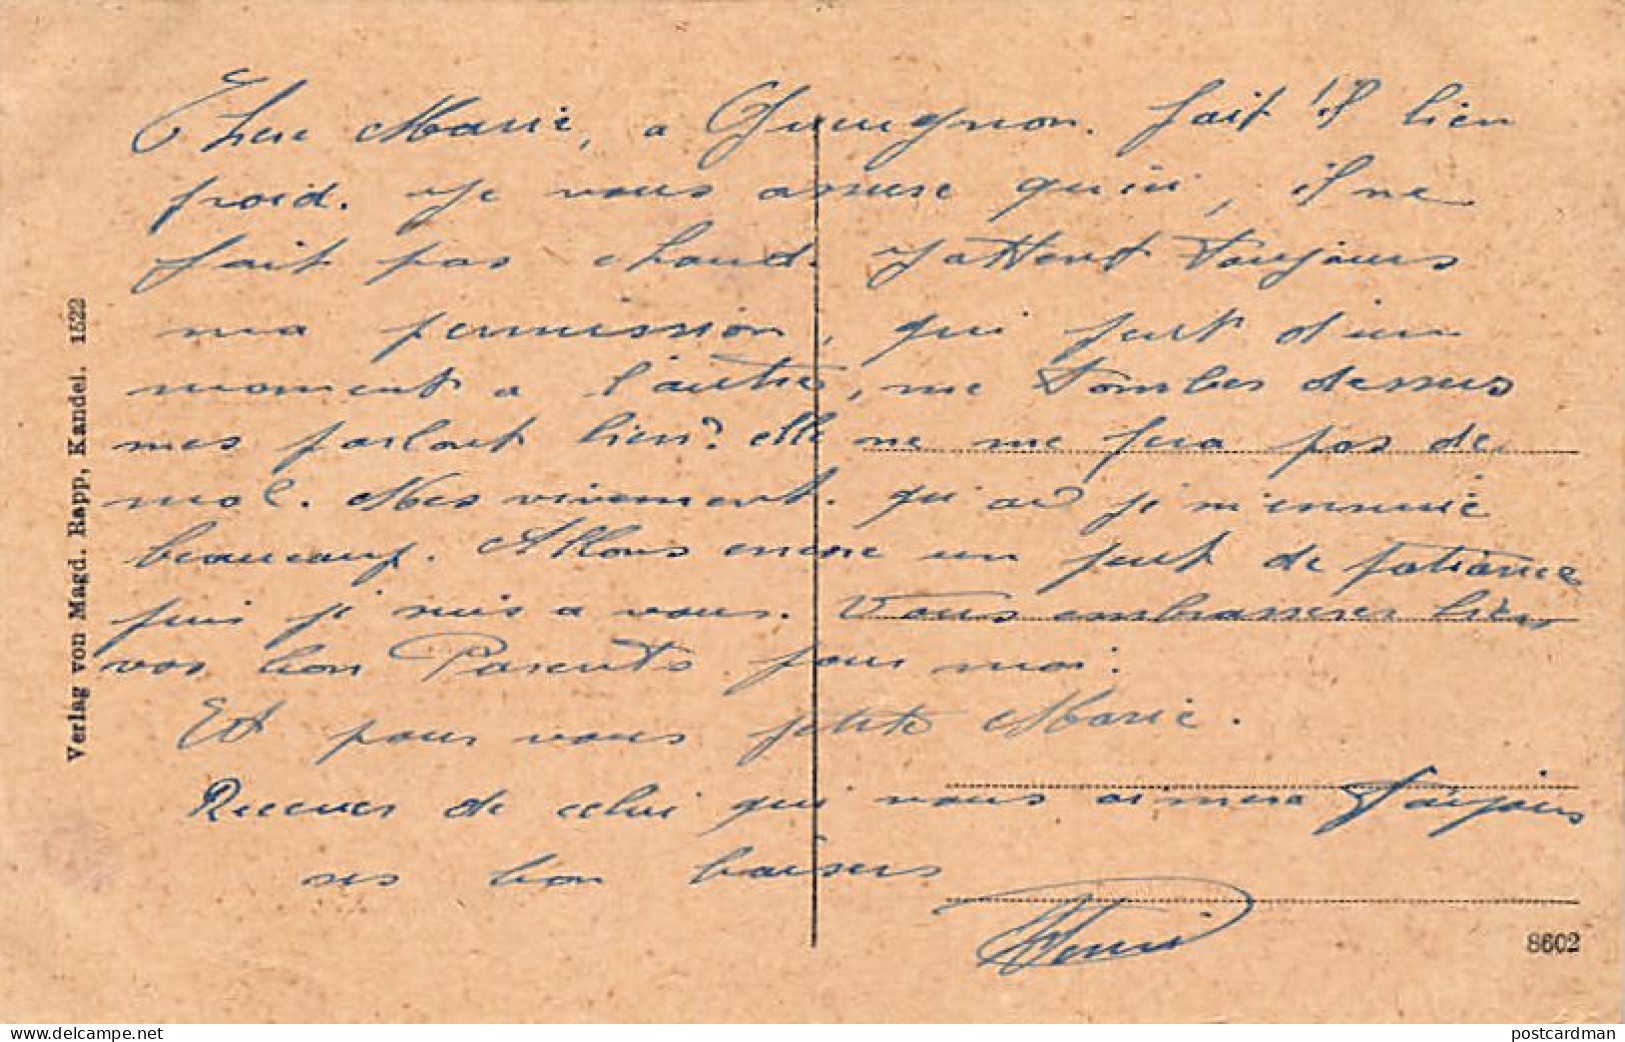 Chere Marie, a Gueugnon. fait 'il bien
froid. Je vous assure qu'ici, il ne
fait pas chaud. J'attent Toujours
ma permission, qui peut d'un
moment a l'autre, me Tomber dessus
mes parlout bien? elle ne me fera pas de
mal. Mes vivement. qu'ar je m'ennuie
beaucoup. Allons encore un peut de patiance
puis je suis a vous. Vous embrasserer bien
vos bon Parents pour moi:
Et pour vous petite Marie.
Recever de celui qui vous aimera Toujours
ses bon baisers
Henri
Verlag von Magd. Rapp, Kandel. 1522
8602
www.delcampe.net
postcardman